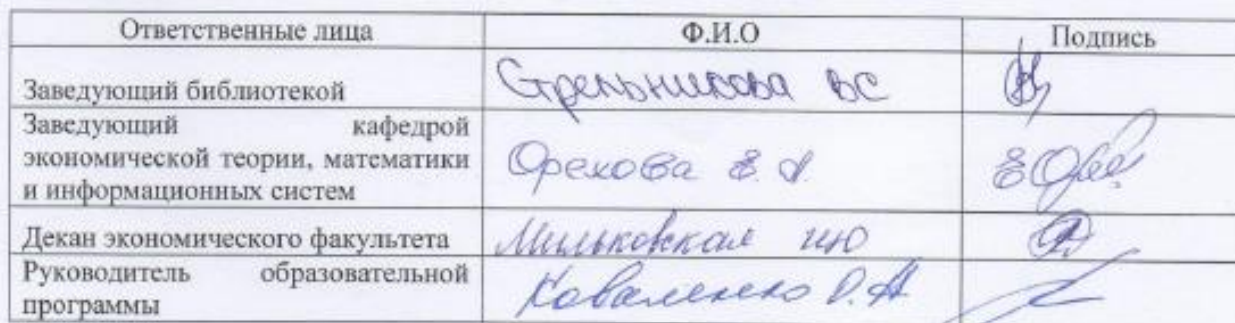 Ответственные лица Ф.И.О Подпись
Заведующий библиотекой Стрельникова ВС
Заведующий кафедрой
экономической теории, математики
и информационных систем
Орехова Е.А.
Декан экономического факультета Мильковская ИЮ
Руководитель образовательной
программы
Коваленко О.А.